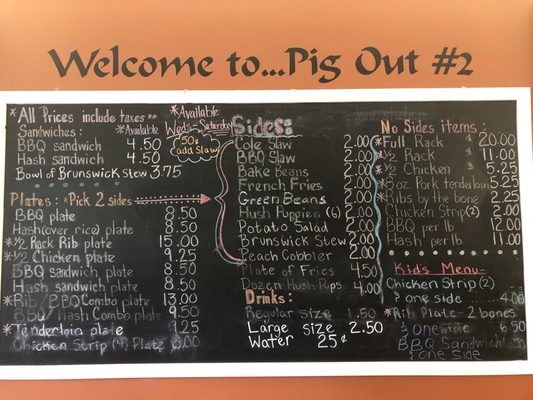 Welcome to...Pig Out #2
*All Prices include taxes**
Sandwiches:
*Available
BBQ sandwich 4.50
Hash sandwich 4.50
Bowl of Brunswick Stew 3.75
*Available
Weds-Saturday
50¢
add slaw
Plates: *Pick 2 sides
BBQ plate 8.50
Hash(over rice) plate 8.50
*½ Rack Rib plate 15.00
*½ Chicken plate 9.25
BBQ sandwich plate 8.50
Hash sandwich plate 8.50
*Rib/BBQ Combo plate 13.00
BBQ/Hash Combo plate 9.50
*Tenderloin plate .25
Chicken Strip (4) Plate .00
Sides:
Cole Slaw 2.00
BBQ Slaw 2.00
Bake Beans 2.00
French Fries 2.00
Green Beans 2.00
Hush Puppies (6) 2.00
Potato Salad 2.00
Brunswick Stew 2.00
Peach Cobbler 2.00
Plate of Fries 4.50
Dozen Hush Pups 4.00
Drinks:
Regular size 1.50
Large size 2.50
Water 25¢
No Sides items:
*Full Rack $ 20.00
*½ Rack $ 11.00
*½ Chicken $ 5.25
*5oz Pork tenderloin 5.25
*Ribs by the bone 2.25
Chicken Strip(2) 2.00
BBQ per lb 12.00
Hash per lb 11.00
Kids Menu
Chicken Strip (2)
& one side 4.00
*Rib Plate- 2 bones
& one side 6.50
BBQ Sandwich
& one side